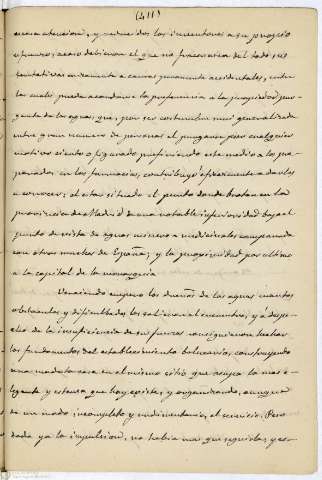 (411)
mera atencion, y reducidos los inventores a su propio
esfuerzo; acaso debieron el que no fracasaran del todo sus
tentativas unicamente a causas puramente accidentales, entre
la cuales puede acordarse la preferencia a la propiedad pur-
gante de las aguas, que, por ser costumbre muy generalizada
entre gran numero de personas el purgarse por cualquier
motivo cierto o figurado prefiriendo este medio a los pre-
parados en las farmacias, contribuyó eficazmente a darlas
a conocer; al estar situado el punto donde brotan en la
provincia de Madrid de una notable inferioridad bajo el
punto de vista de aguas minero-medicinales comparada
con otras muchas de España; y la proximidad por ultimo
a la capital de la monarquia
Venciendo empero los dueños de las aguas cuantos
obstaculos y dificultades les salieron al encuentro, y a despe-
cho de la insuficiencia de sus fuerzas consiguieron hechar
los fundamentos del establecimiento balneario, construyendo
una modesta casa en el mismo sitio que ocupa la mas e-
legante y estensa que hoy existe, y organizando, aunque
de un modo incompleto y rudimentario, el servicio. Pero
dada ya la impulsion, no habia mas que seguirla, y es-